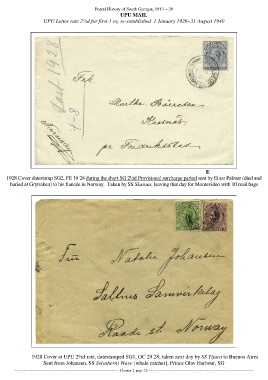 Postal History of South Georgia, 1911 – 28
UPU MAIL
UPU Letter rate 2½d for first 1 oz, re-established 1 January 1926–31 August 1940
Sept 1928
4-8
Norway
Frk.
Martha Børresen
pr Fredrikstad
1928 Cover datestamp SG2, FE 19 28 during the short SG 2½d Provisional surcharge period sent by Einar Palmer (died and
buried at Grytviken) to his fiancée in Norway. Taken by SS leaving that day for Montevideo with 10 mail bags
Fru Natalie Johansen
Saltnes Samvirkelag
Raade st. Norway
1928 Cover at UPU 2½d rate, datestamped SG1, OC 28 28, taken next day by SS Tijuca to Buenos Aires
Sent from Johansen, SS Southern Wave (whale catcher), Prince Olav Harbour, SG